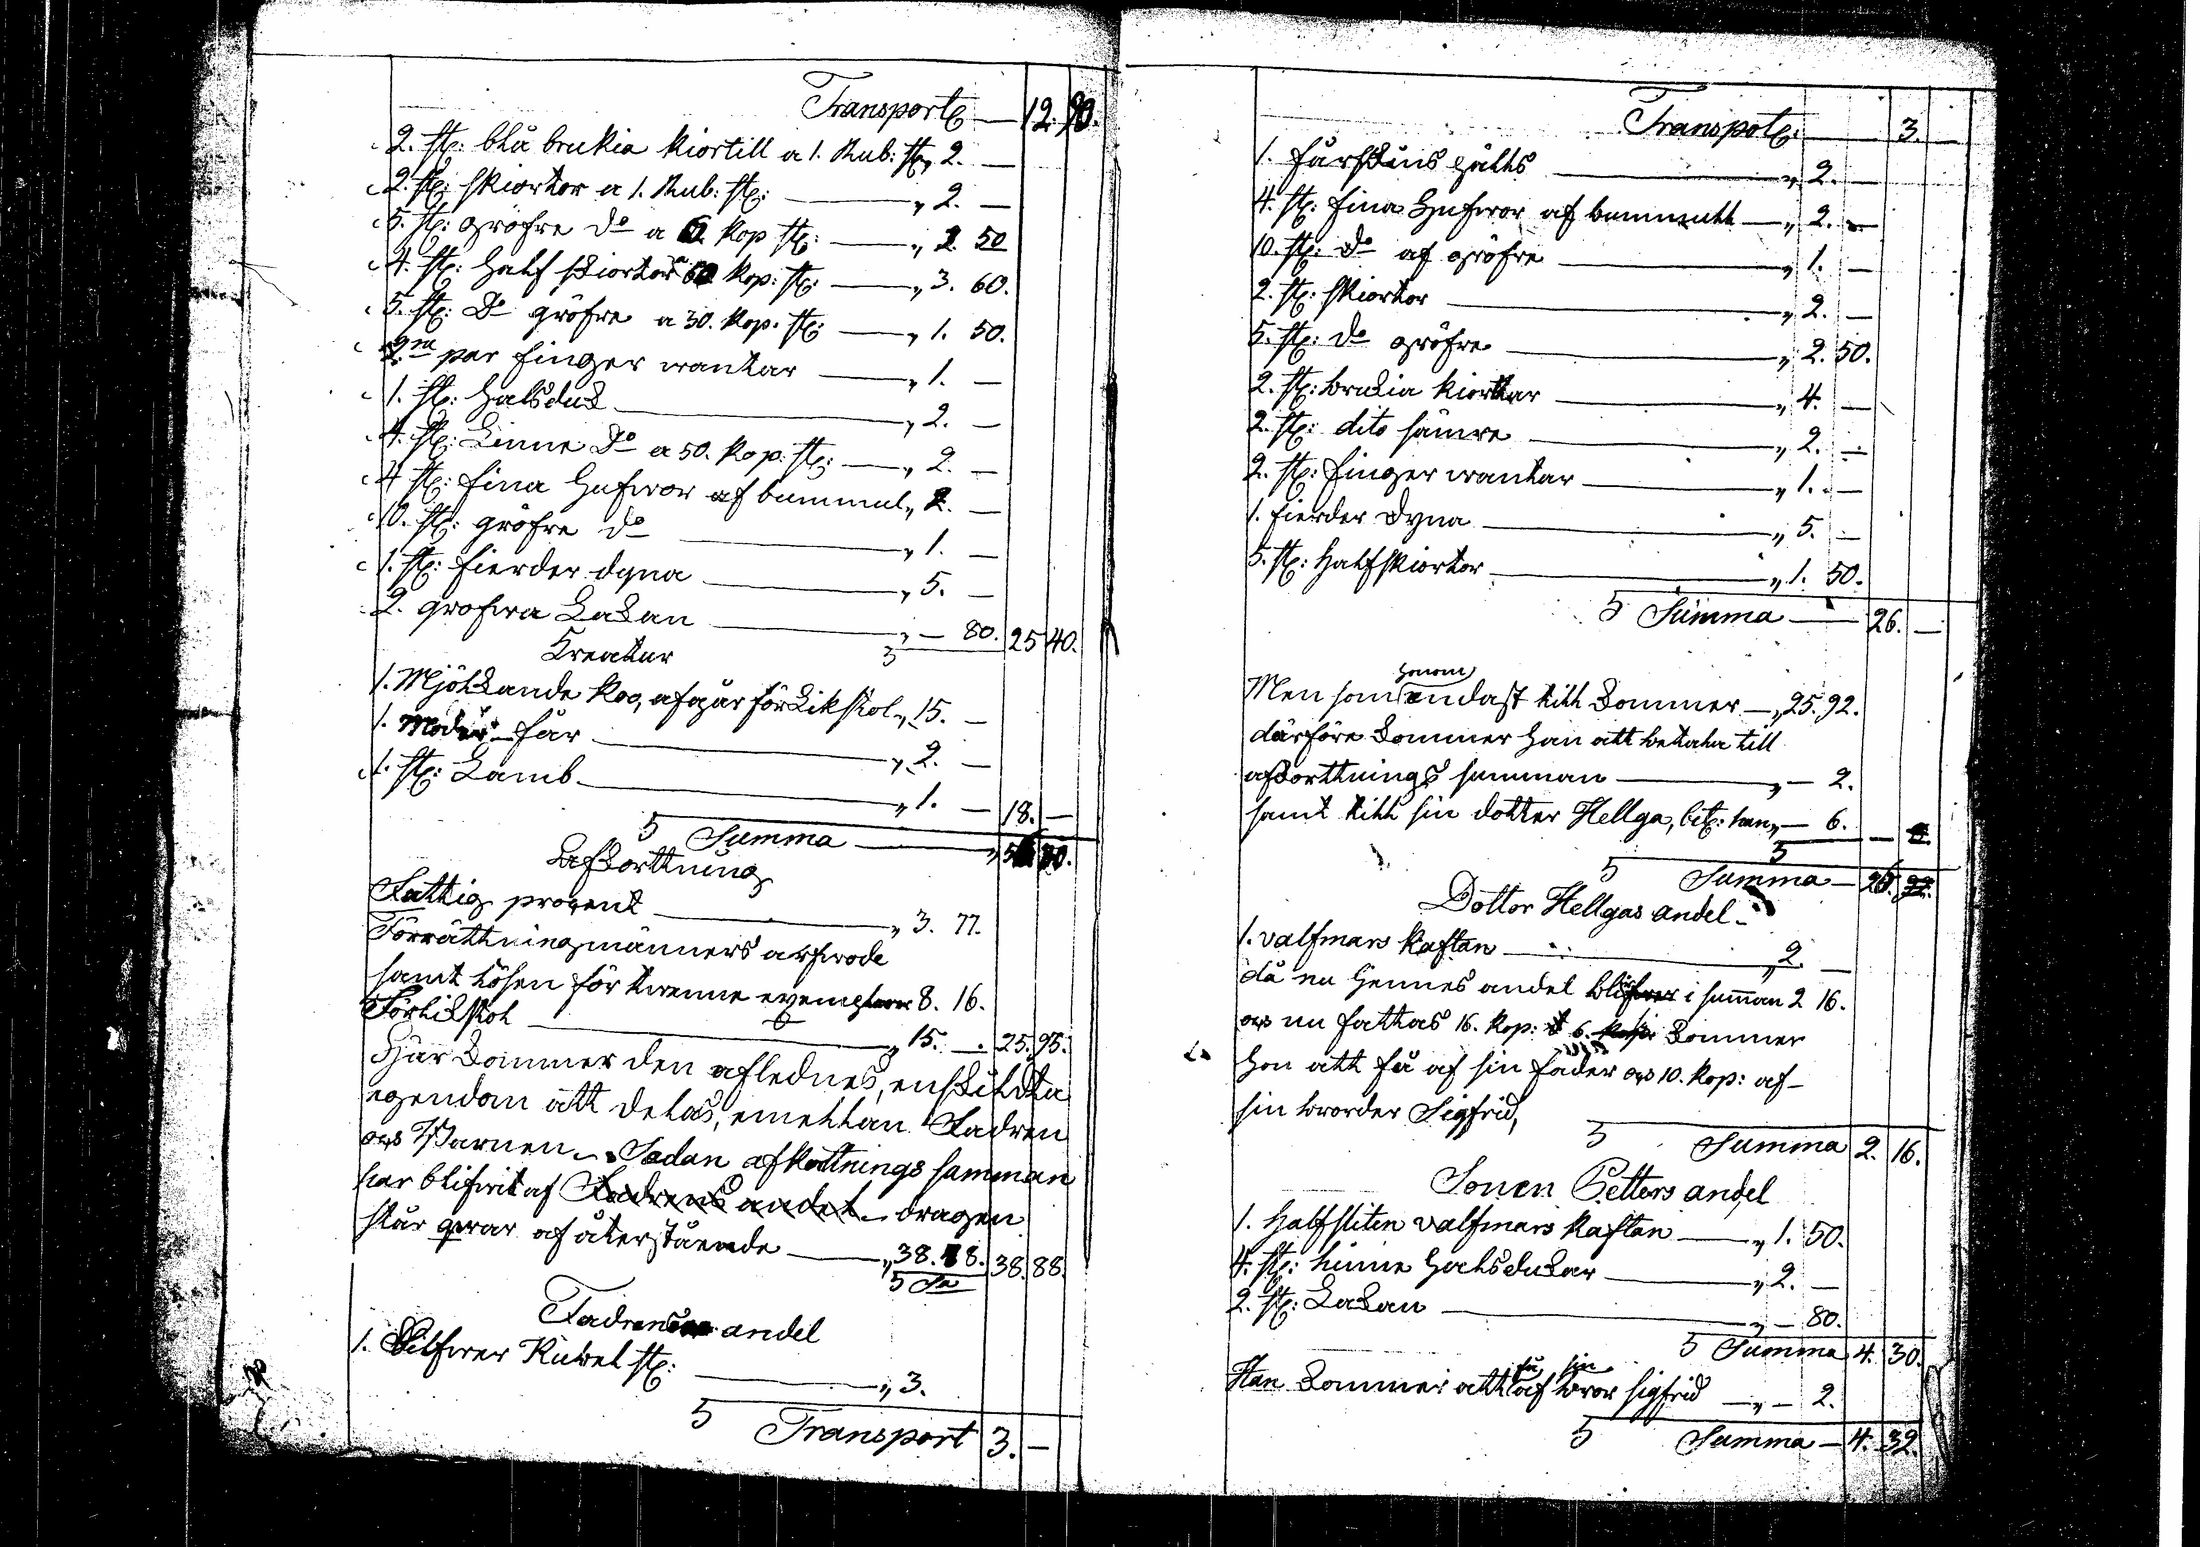 Transport 12. 90.
2. st: blå brukia kiortill a 1. Rub: st „ 2. —
2. st: skiortor a 1. Rub: st: „ 2. —
5. st: gröfre Do a kop st: „ 2 50
4. st: half skiortor kop: st: „ 3. 60.
5. st: Do gröfre a 30. kop. st: „ 1. 50.
2ne par finger wantar „ 1. —
1. st: halsduk „ 2. —
4. st: Linne Do a 50. kop: st: „ 2. —
4 st: fina hufwor af bummul „ 2. —
10. st: gröfre do „ 1. —
1. st: fierder dyna „ 5. —
2. grofwa Lakan „ — 80. 25 40.
Creatur
1. Mjölkande ko, afgår för Likstol „ 15. —
1. Moder får „ 2. —
1. st: Lamb „ 1. — 18. —
S Summa
Afkorttning
Fattig procent „ 3. 77.
Förrättningsmänners arfwode
samt lösen för twenne exemplar 8. 16.
För likstol „ 15. — 25. 95.
Här kommer den aflednes, enskildta
egendom att delas, emellan Fadren
och Barnen. Sedan afkottnings summan
har blifwit af Fadrens andel dragen
står qwar af återstående „ 38. 88. 38. 88.
S Sa
Fadrens andel
1. Silfwer Rubel st: „ 3.
S Transport 3. —
Transpot: 3. —
1. fårskins pälts „ 2. —
4. st: fina hufwor af bummull „ 2. —
10. st: do af gröfre „ 1. —
2. st: skiortor „ 2. —
5. st: do gröfre „ 2. 50.
2. st: brukia kiortlar „ 4. —
2. st: dito sämre „ 2. —
2. st: finger wantar „ 1. —
1. fierder Dyna „ 5. —
5. st: halfskiortor „ 1. 50.
S Summa 26. —
honom
Men som endast till kommer „ 25. 92.
därföre kommer han att betala till
afkorttnings summan „ — 2.
samt till sin dotter Hellga, bet: han „ — 6.
S Summa
Dottor Hellgas andel
1. valfmars kaftan „ 2. —
då nu hennes andel i summan 2 16.
och nu fattas 16. kop: 6. kop: kommer
hon att få af sin fader och 10. kop: af
sin broder Sigfrid,
S Summa 2. 16.
Sonen Petters andel
1. halfsliten valfmars kaftan „ 1. 50.
4. st: linne halsdukar „ 2. —
2. st: Lakan „ — 80.
S Summa 4. 30.
få sin
Han kommer att af bror sigfrid „ — 2.
S Summa 4. 32.